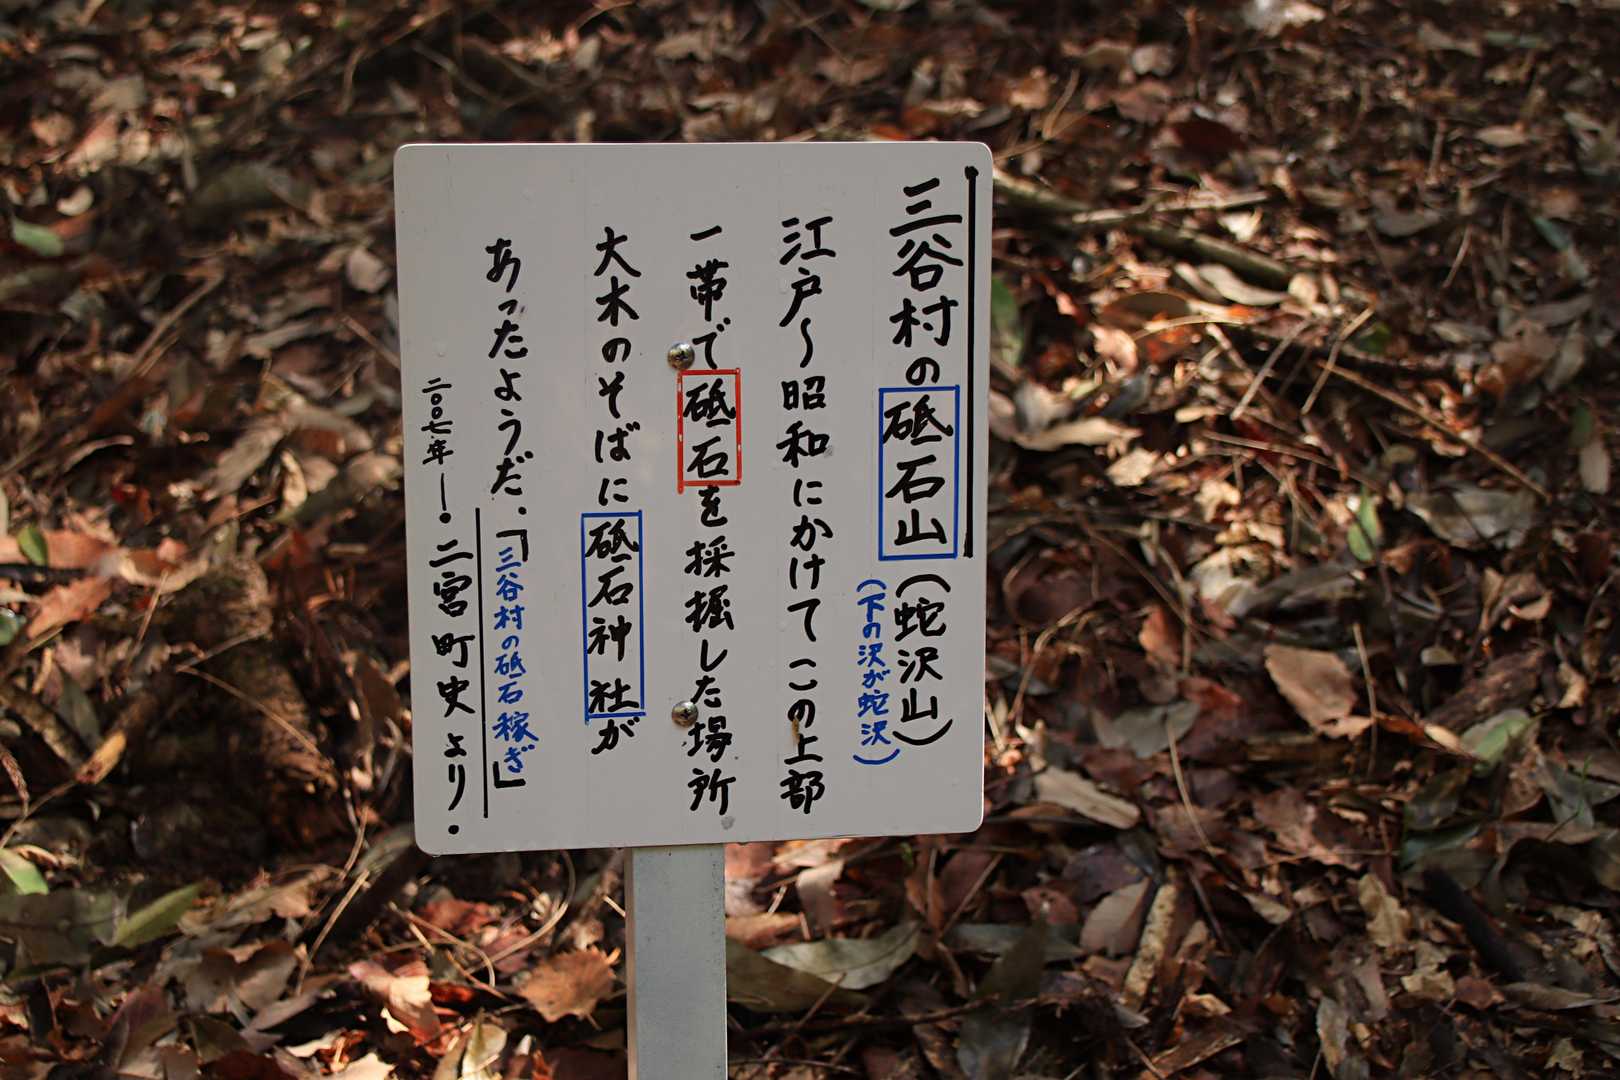 三谷村の砥石山(蛇沢山)
(下の沢が蛇沢)
江戸〜昭和にかけてこの上部
一帯で砥石を採掘した場所
大木のそばに砥石神社が
あったようだ.「三谷村の砥石稼ぎ」
二〇〇七年ー.二宮町史より.